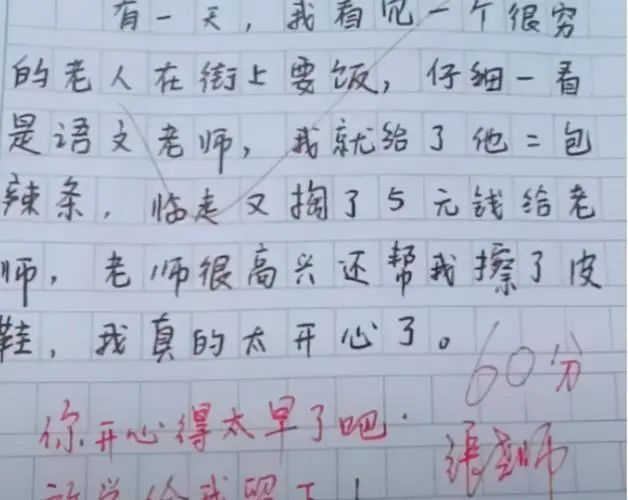 有一天，我看见一个很穷
的老人在街上要饭，仔细一看
是语文老师，我就给了他二包
辣条，临走又掏了5元钱给老
师，老师很高兴还帮我擦了皮
鞋，我真的太开心了。
60分
你开心得太早了吧.
张老师
放学给我留下！